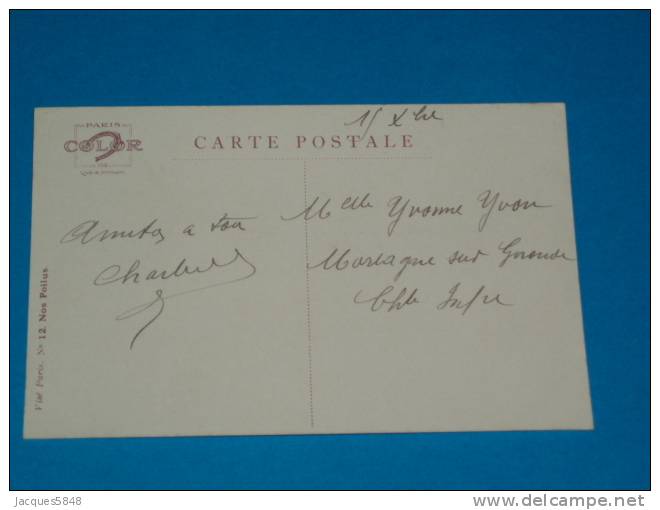 PARIS
COLOR
CARTE POSTALE
15 Xbre
Amitiés a ton
Charles
Melle Yvonne Yvon
Mortagne sur Gironde
Chte Infre
Visé Paris. No 12. Nos Poilus
Jacques5848
delcampe.net